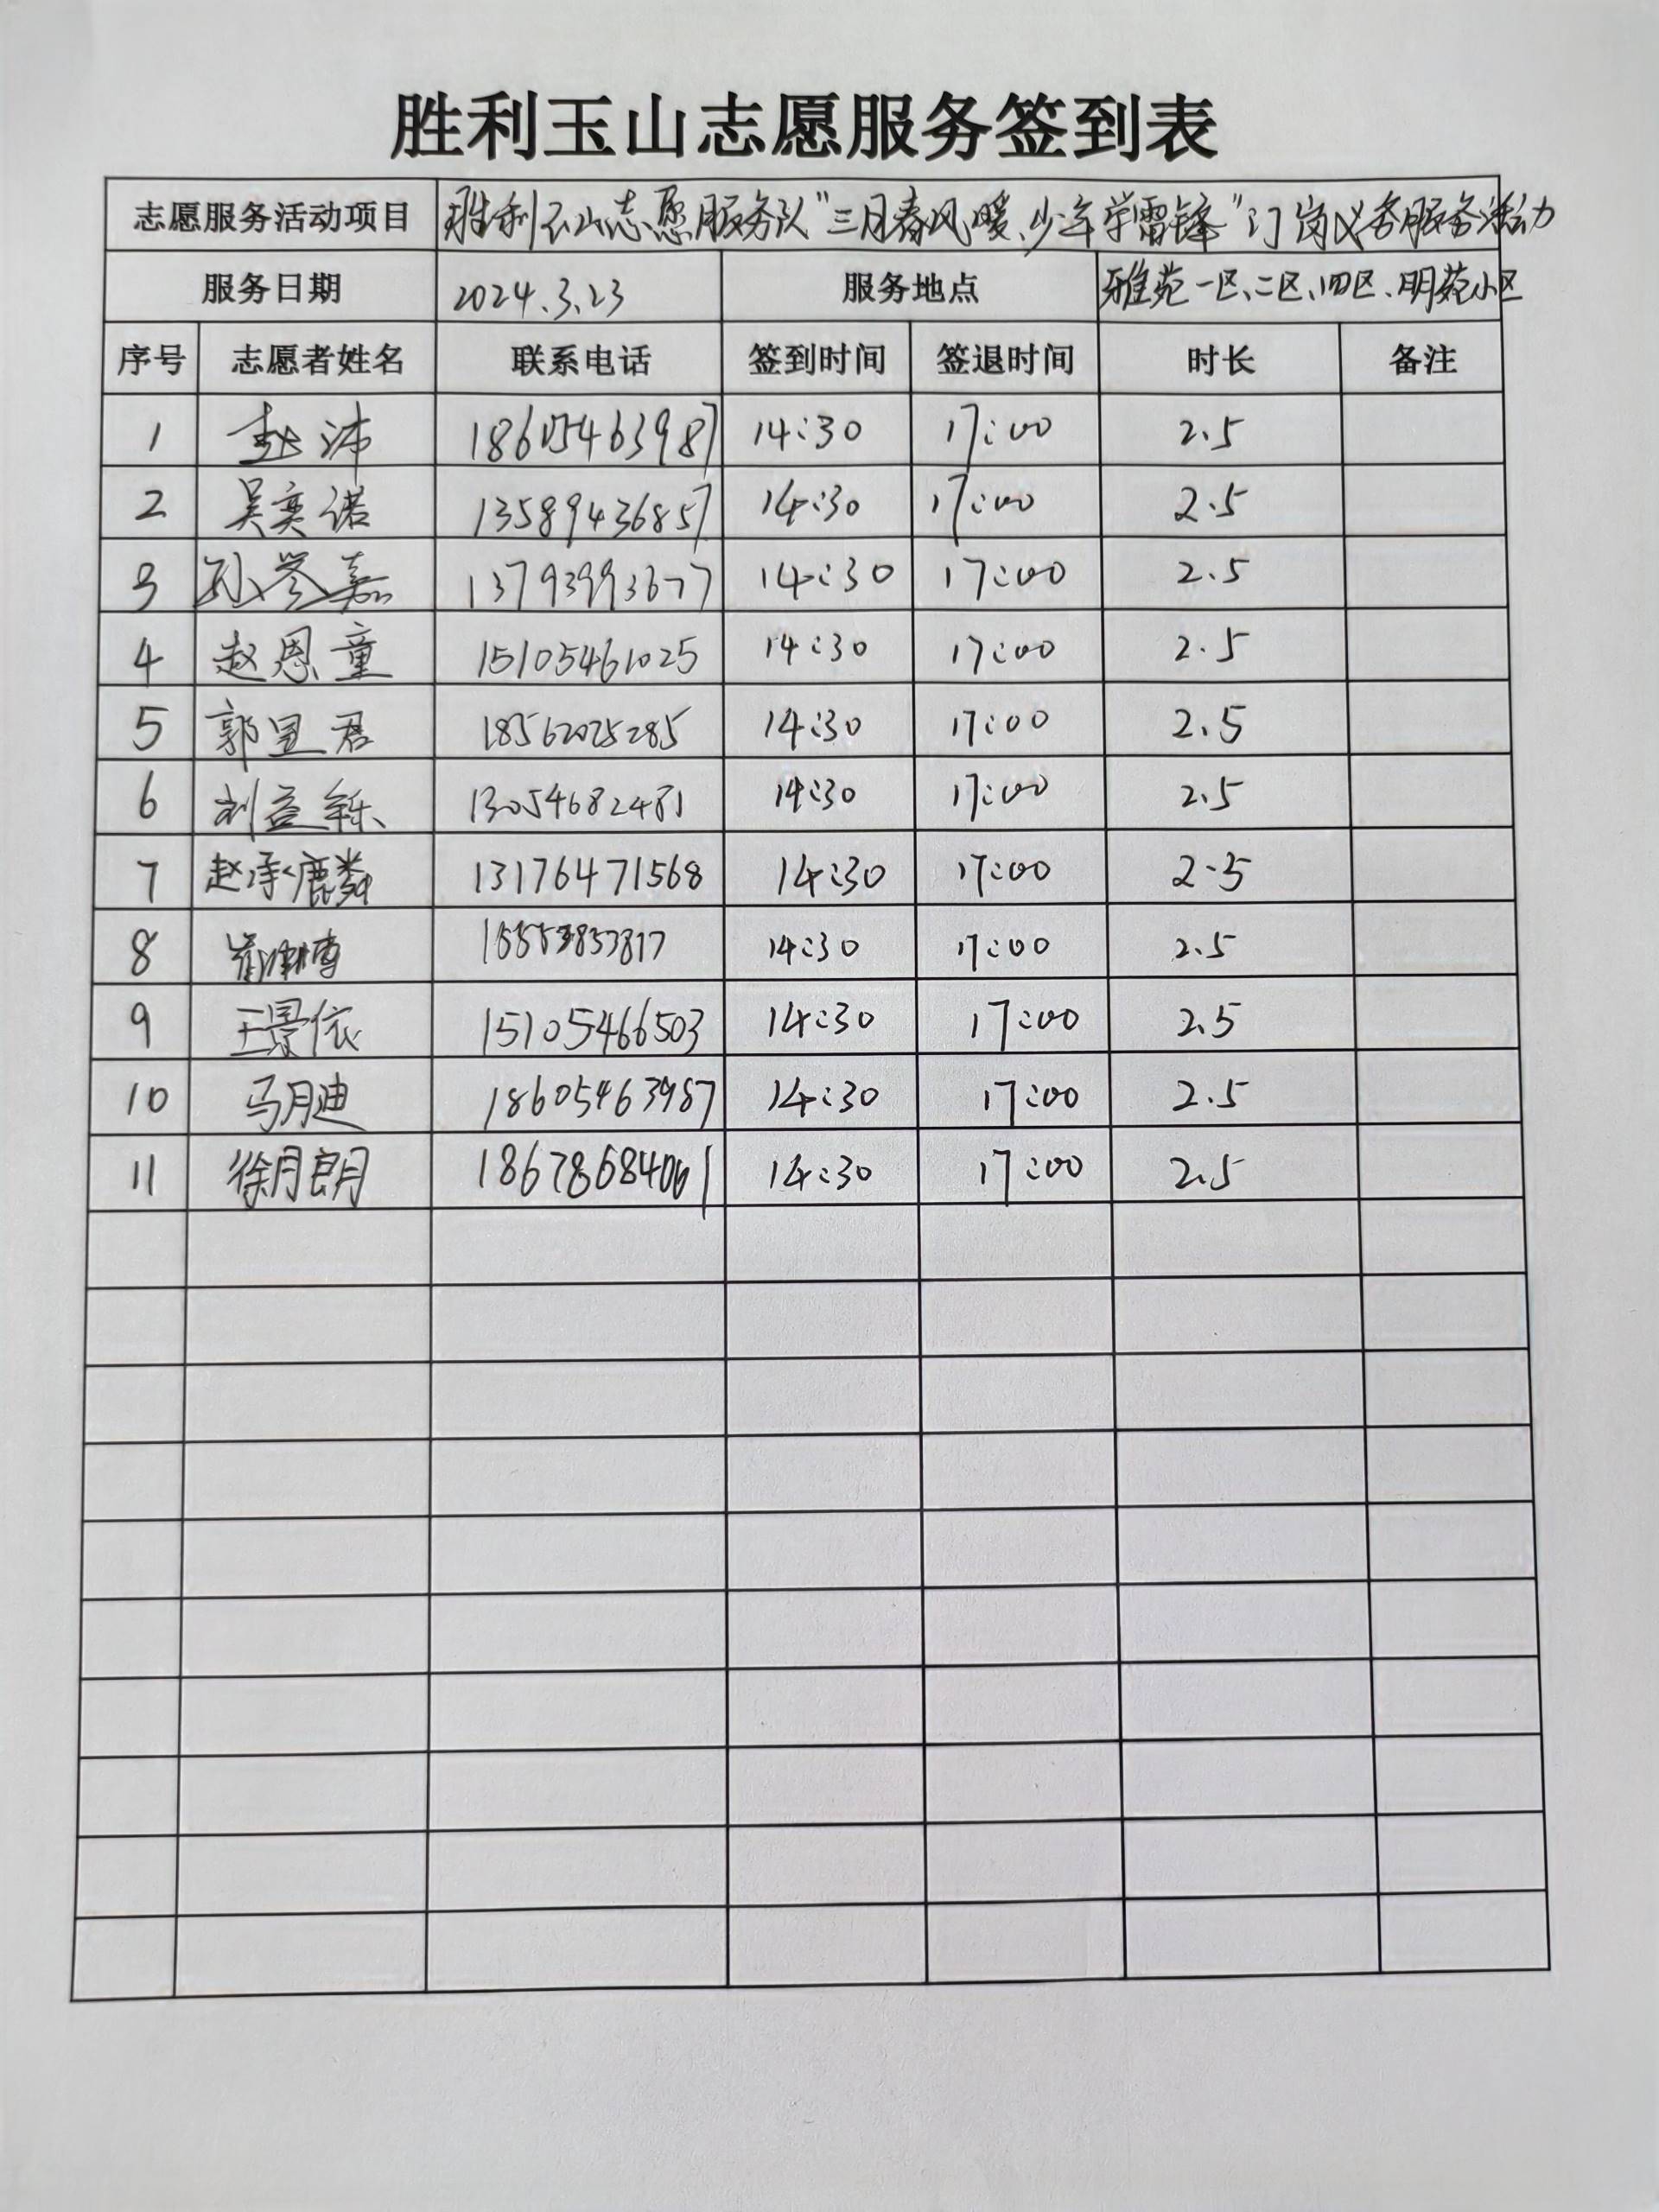 胜利玉山志愿服务签到表
志愿服务活动项目 胜利玉山志愿服务队"三月春风暖、少年学雷锋"门岗义务服务活动
服务日期 2024.3.23 服务地点 雅苑一区、二区、四区、明苑小区
序号 志愿者姓名 联系电话 签到时间 签退时间 时长 备注
1 赵沛 18605463987 14:30 17:00 2.5
2 吴奕诺 135899436857 14:30 17:00 2.5
3 孙誉嘉 13793993677 14:30 17:00 2.5
4 赵恩童 15105461025 14:30 17:00 2.5
5 郭昱君 18562025285 14:30 17:00 2.5
6 刘益铄 13054682481 14:30 17:00 2.5
7 赵承麟 13176471568 14:30 17:00 2.5
8 14:30 17:00 2.5
9 王景依 15105466503 14:30 17:00 2.5
10 马月迪 18605463987 14:30 17:00 2.5
11 徐朗月 18678684061 14:30 17:00 2.5